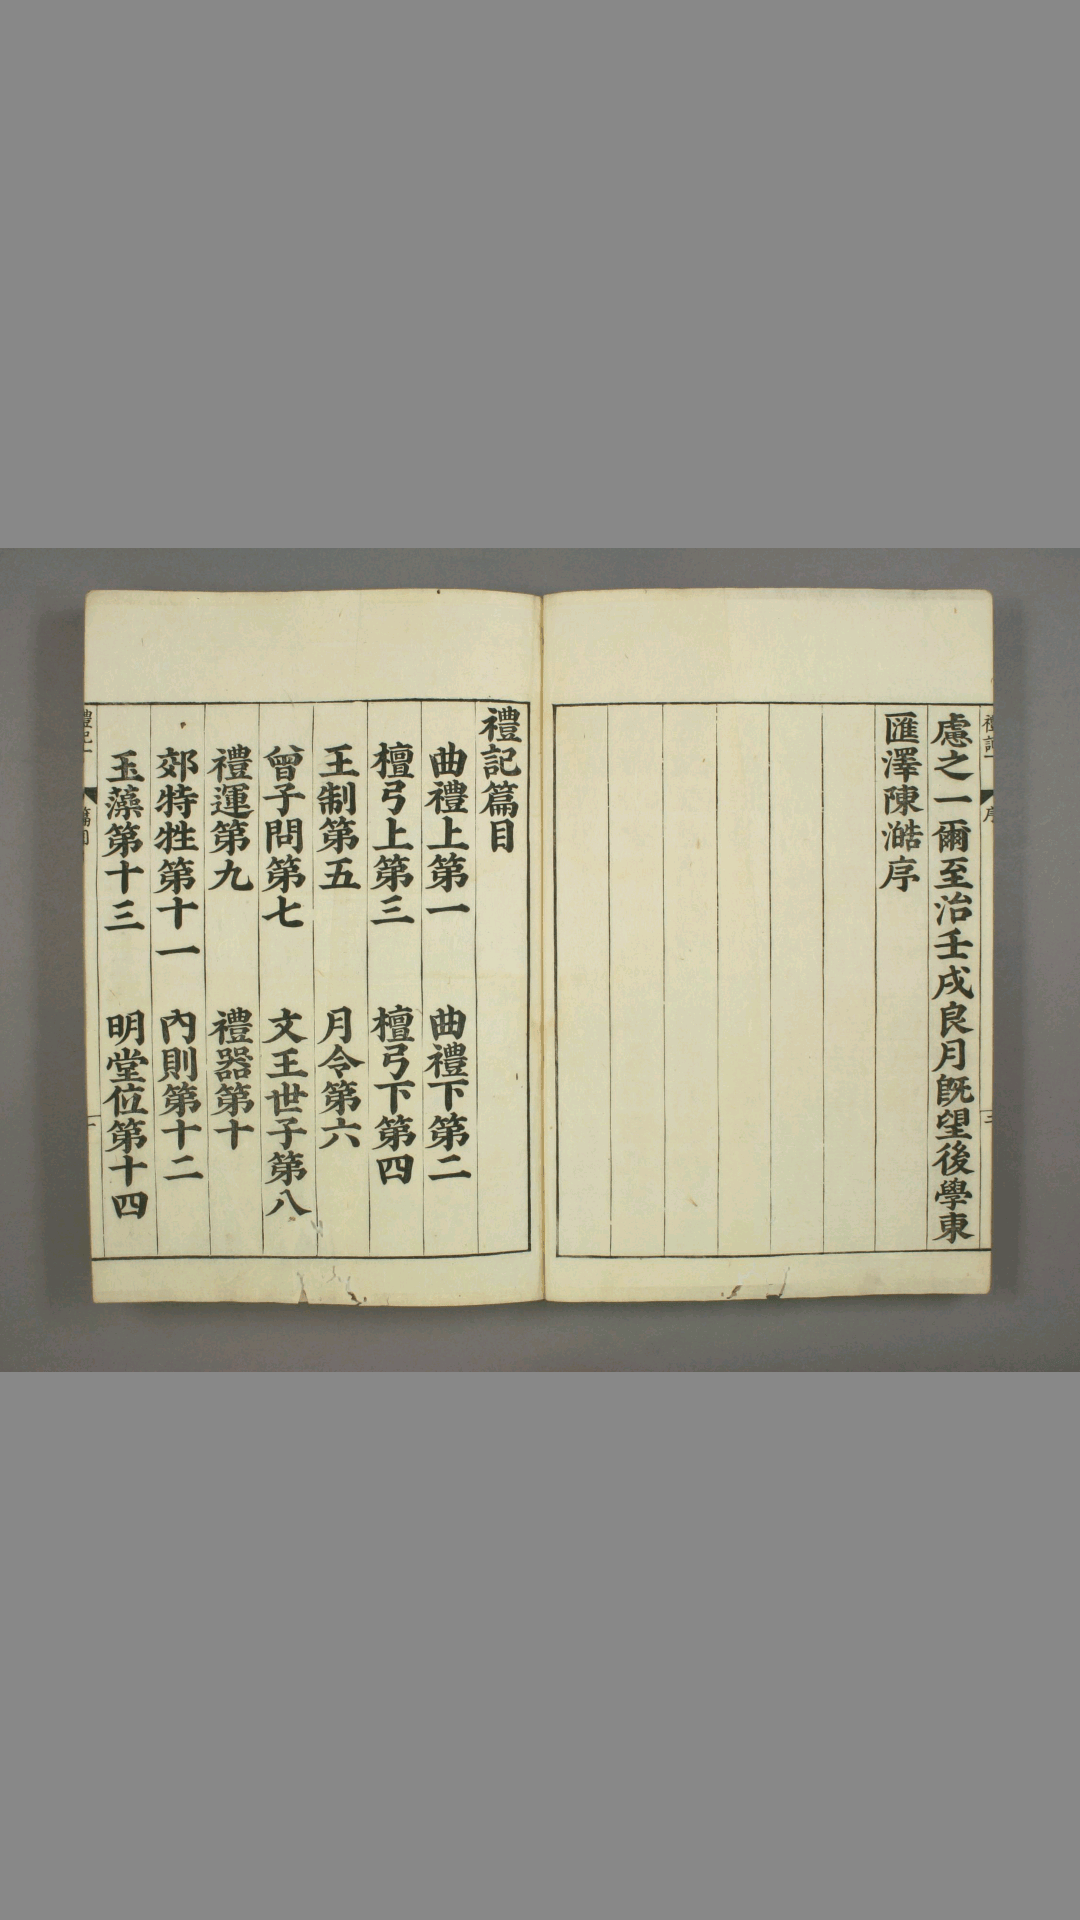 慮之一爾至治壬戌良月旣望後學東
匯澤陳澔序
禮記篇目
曲禮上第一 曲禮下第二
檀弓上第三 檀弓下第四
王制第五 月令第六
曾子問第七 文王世子第八
禮運第九 禮器第十
郊特牲第十一 內則第十二
玉藻第十三 明堂位第十四